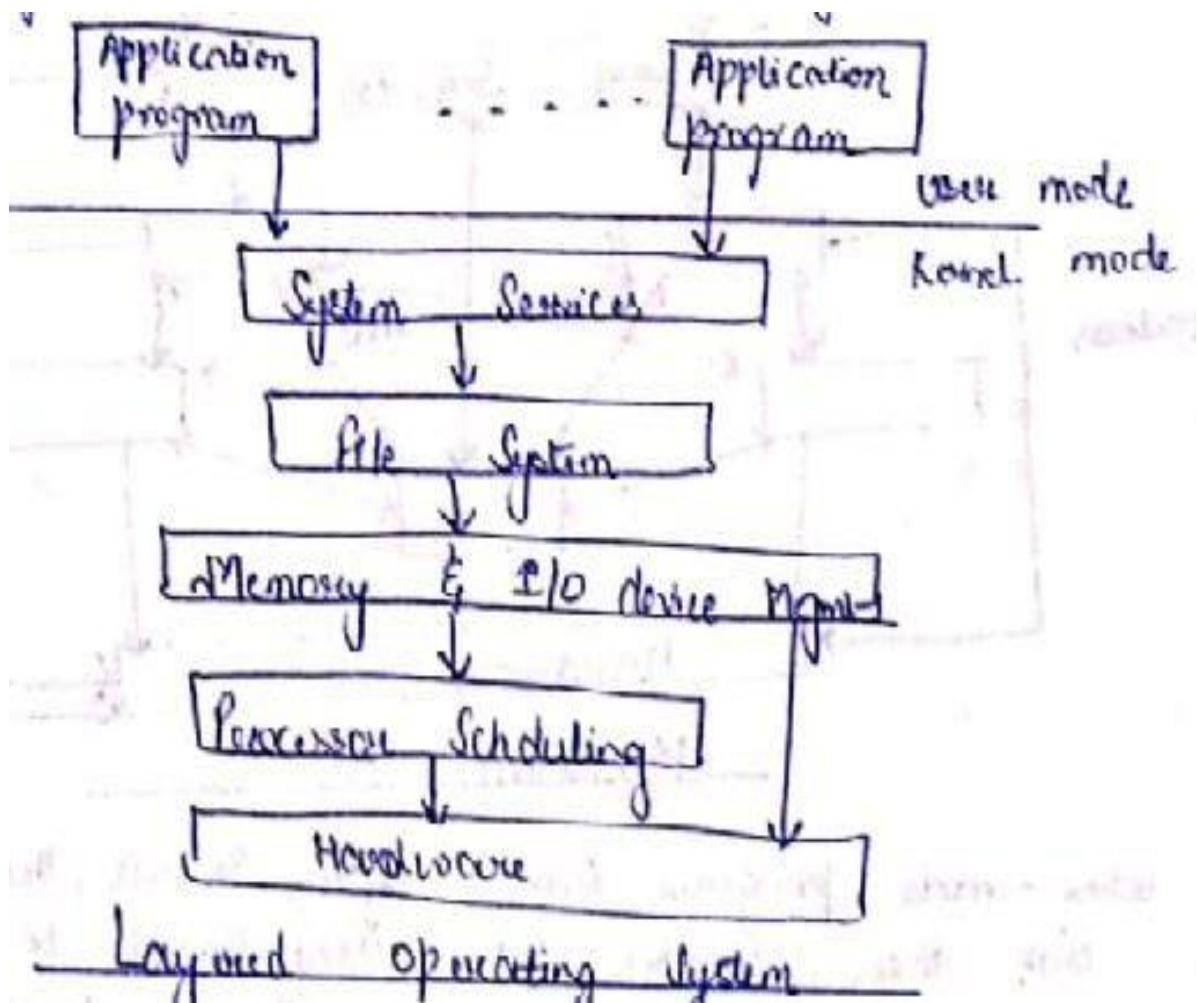 Application
program
. . . . .
Application
program
User mode
Kernel mode
System Services
File System
Memory & I/O device Mgmt
Processor Schduling
Hardware
Layered Operating System